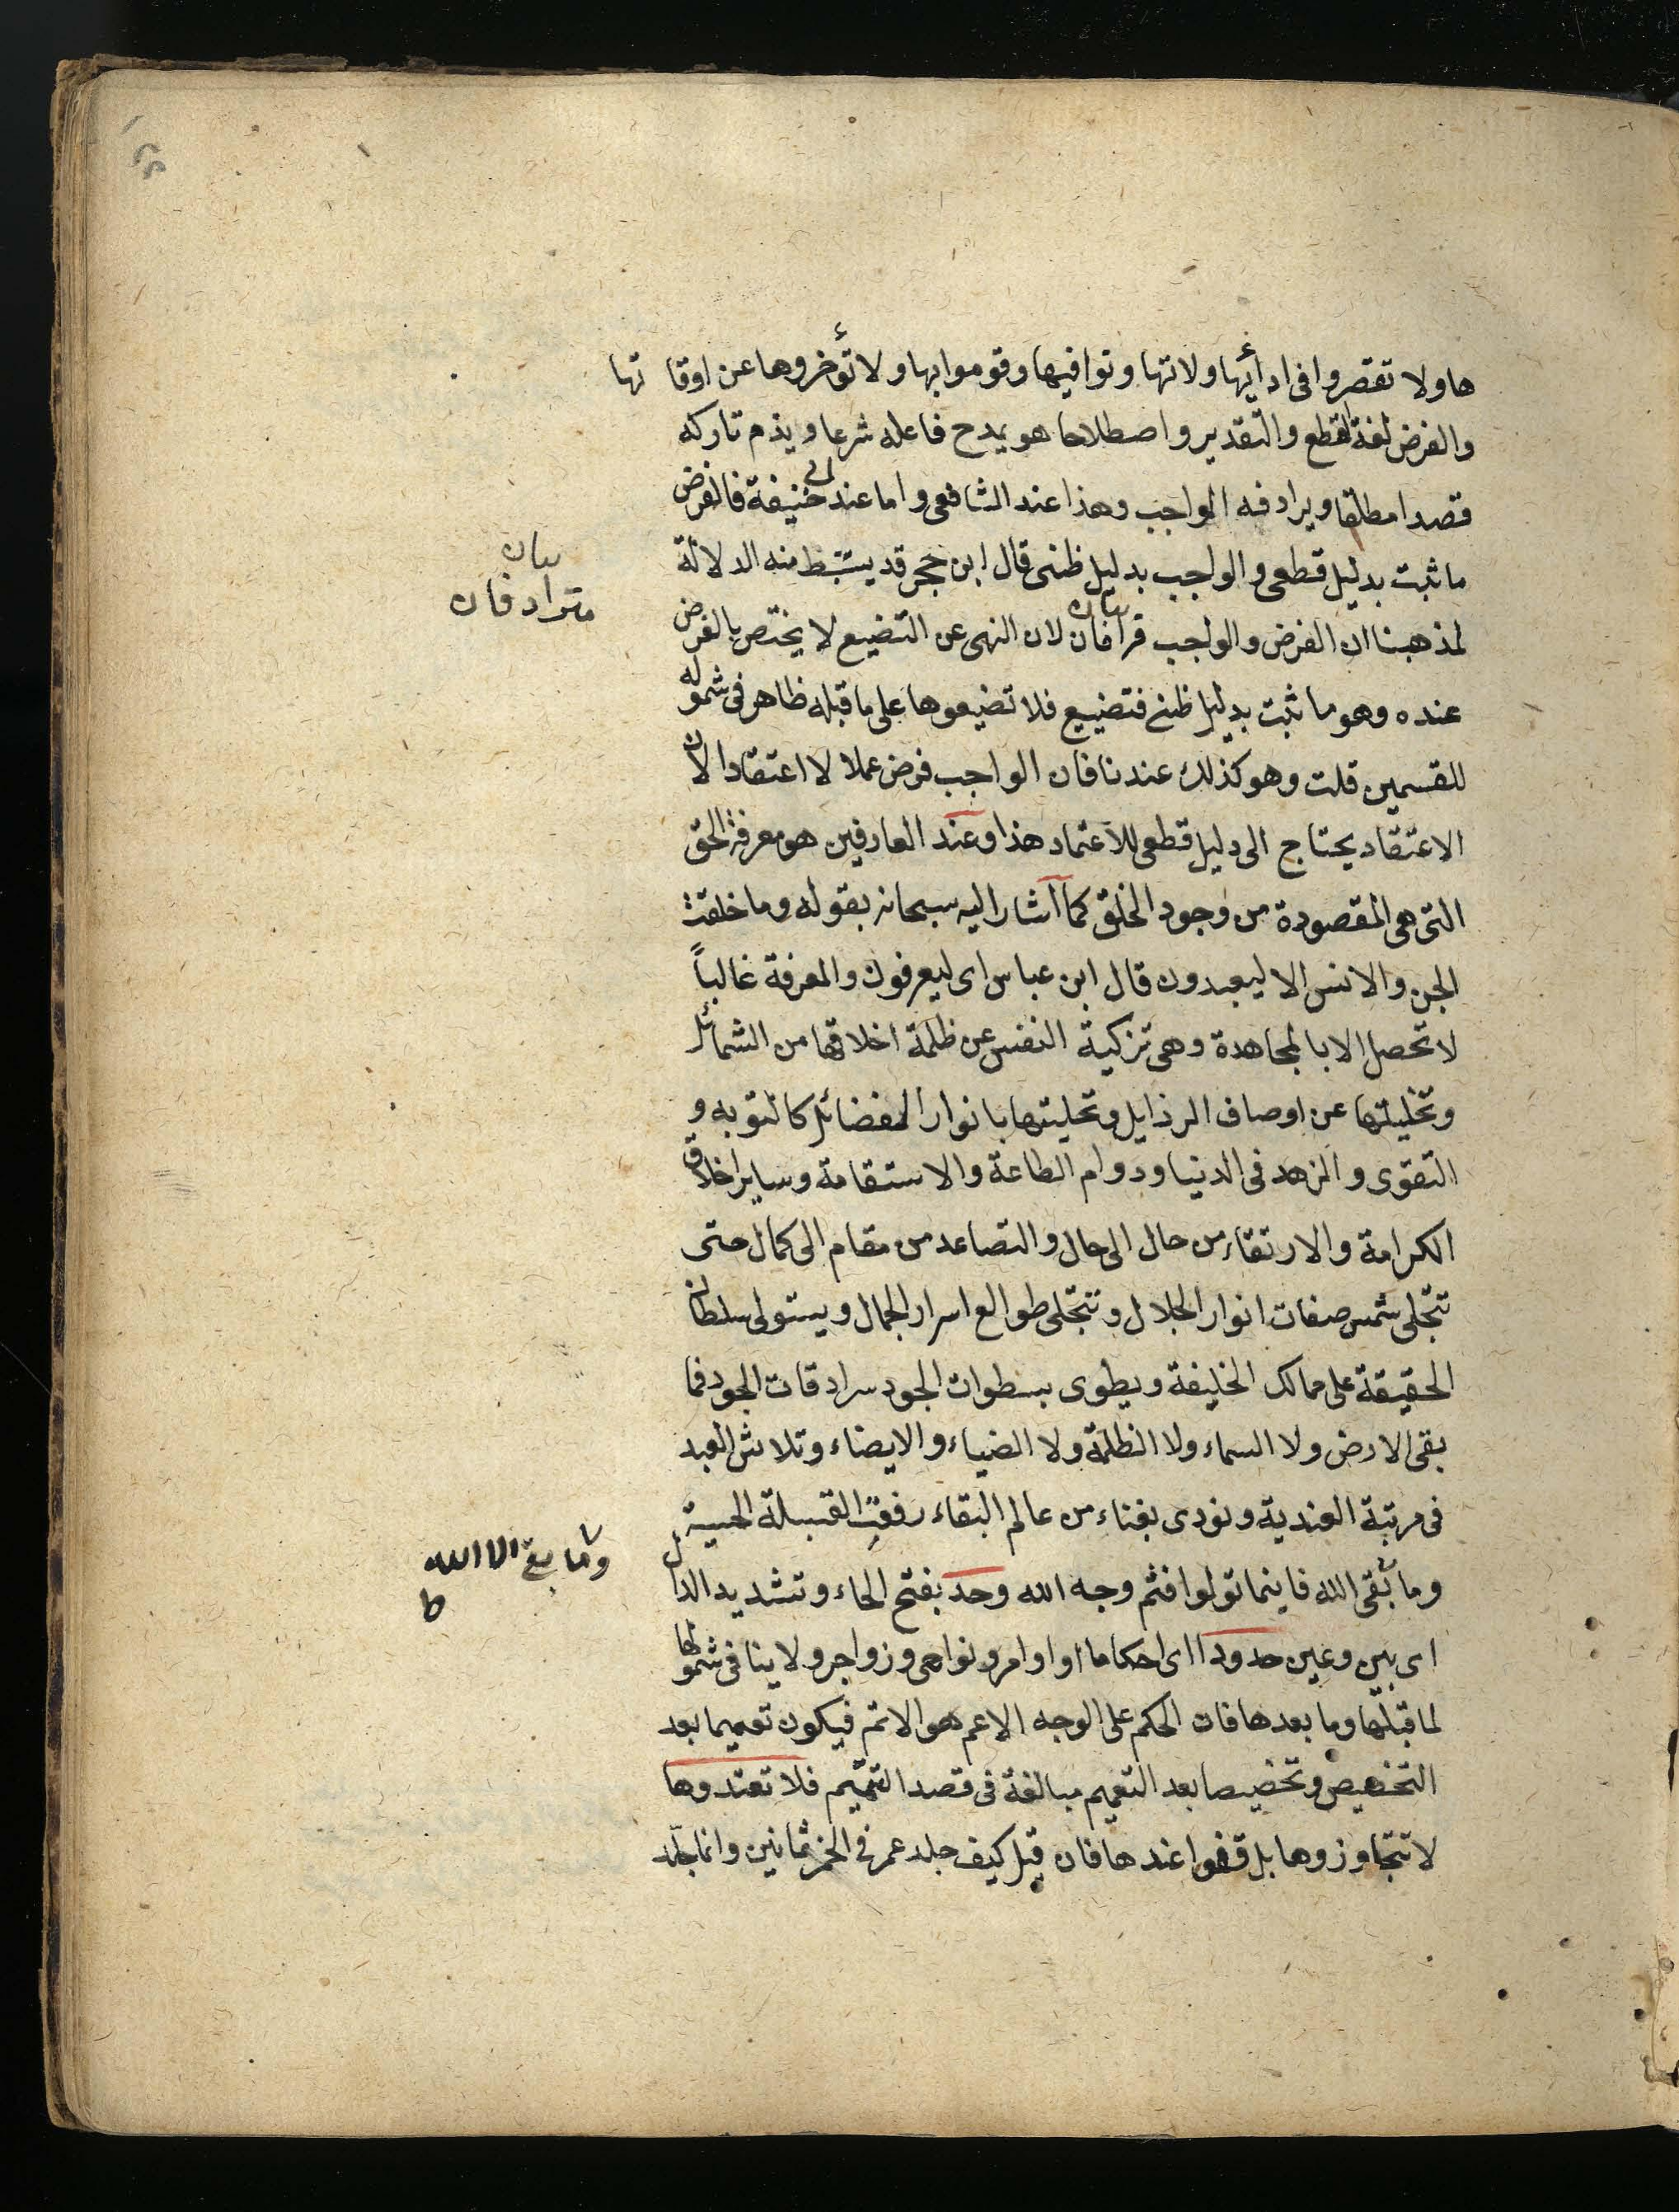 ها ولا تقصروا فى ادأيها ولاتها وتوافيها وقوموا بها ولا تؤخروها عن اوقا تها
والفرض لغة القطع والتقدير واصطلاحا هو يمدح فاعله شرعا ويذم تاركه
قصدا مطلقا ويرادفه الواجب وهذا عند الشافعى واما عند ابى حنيفة فالفرض
ما ثبت بدليل قطعى والواجب بدليل ظنى قال ابن حجر قد يستنبط منه الدلالة
بيان
مترادفان
لمذهبنا ان الفرض والواجب لان النهى عن التضيع لا يختص بالفرض
عنده وهو ما ثبت بدليل ظنى فتضييع فلا تضيعوها على ما قبله ظاهر فى شموله
للقسمين قلت وهو كذلك عندنا فان الواجب فرض عملا لا اعتقادا لان
الاعتقاد يحتاج الى دليل قطعى للاعتماد هذا وعند العارفين هو معرفة الحق
التى هى المقصودة من وجود الخلق كما اشار اليه سبحانه بقوله وما خلقت
الجن والانس الا ليعبدون قال ابن عباس اى ليعرفون والمعرفة غالباً
لا تحصل الا بالمجاهدة وهى تزكية النفس عن ظلمة اخلاقها من الشمائل
وتخليتها عن اوصاف الرذايل وتحليتها بانوار الفضائل كالتوبه و
التقوى والزهد فى الدنيا ودوام الطاعة والاستقامة وساير اخلاق
الكرامة والارتقاء من حال الى حال والتصاعد من مقام الى كمال حتى
تتجلى شمس صفات انوار الجلال وتتجلى طوالع اسرار الجمال ويستولى سلطان
الحقيقة على ممالك الخليفة ويطوى بسطوات الجود سرادقات الجود فما
بقى الارض ولا السماء ولا الظلمة ولا الضياء والايضاء وتلاشى العبد
فى مرتبة العندية ونودى بفناء من عالم البقاء
وما بقى الا الله
ط
وما بقى الله فاينما تولوا فثم وجه الله وحد بفتح الحاء وتشديد الدال
اى بين وعين حدودا اى احكاما او اوامر ونواهى وزواجر ولا ينافى شمولها
لما قبلها وما بعدها فان الحكم على الوجه الاعم هو الاتم فيكون تعميما بعد
التخصيص وتخصيصا بعد التعميم مبالغة فى قصد التتميم فلا تعتدوها
لا تتجاوزوها بل قفوا عندها فان قيل كيف جلد عمر فى الخمر ثمانين وانما جلد